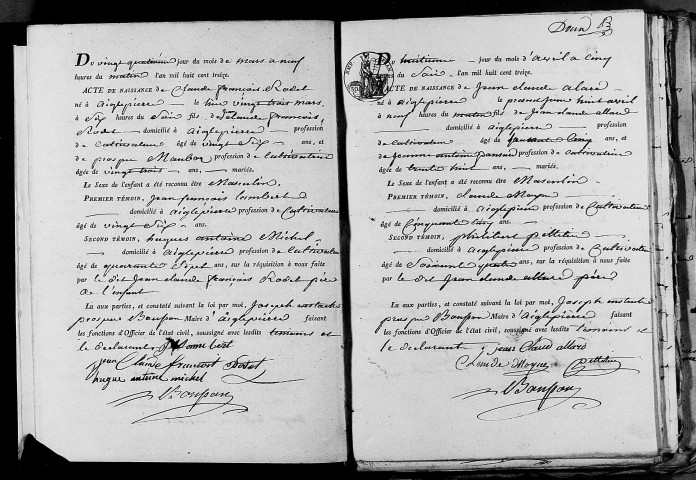 Du vingt quatrième jour du mois de mars a neuf
heures du matin l'an mil huit cent treize.
ACTE DE NAISSANCE de Claude François Rodet
né à aiglepierre le hier vingt trois mars
à Six heures du Soir fils de Jean Claude françois
Rodet domicilié à aiglepierre profession
de cultivateur âgé de vingt Six ans, et
de prospere profession de Cultivatrice
âgée de vingt trois ans, mariés.
Le Sexe de l'enfant a été reconnu être Masculin
PREMIER TÉMOIN, jean françois
domicilié à aiglepierre profession de Cultivateur
âgé de vingt Six ans.
SECOND TÉMOIN, hugues antoine Michel
domicilié à aiglepierre profession de Cultivateur
âgé de quarante Sept ans, sur la réquisition à nous faite
par le dit Jean claude françois Rodet père
de l'enfant
Lu aux parties, et constaté suivant la loi par moi, Joseph
prospere Bousson Maire d'aiglepierre faisant
les fonctions d'Officier de l'état civil, soussigné avec lesdits temoins et
le declarant
jean Claude francois Rodet
hugue antoine michel
Bousson
Du huitieme jour du mois d'avril a cinq
heures du Soir l'an mil huit cent treize.
ACTE DE NAISSANCE de Jean claude alard
né à aiglepierre le huit avril
à neuf heures du matin fils de Jean claude allard
domicilié à aiglepierre profession
de cultivateur âgé de cinq ans, et
de profession de cultivatrice
âgée de trente huit ans, mariés.
Le Sexe de l'enfant a été reconnu être Masculin
PREMIER TÉMOIN, claude
domicilié à aiglepierre profession de Cultivateur
âgé de Cinquante ans.
SECOND TÉMOIN,
domicilié à aiglepierre profession de Cultivateur
âgé de Soixante ans, sur la réquisition à nous faite
par le dit Jean claude allard père
Lu aux parties, et constaté suivant la loi par moi, Joseph
prospere Bousson Maire d'aiglepierre faisant
les fonctions d'Officier de l'état civil, soussigné avec lesdits temoins et
le declarant jean Claud allard
Bousson